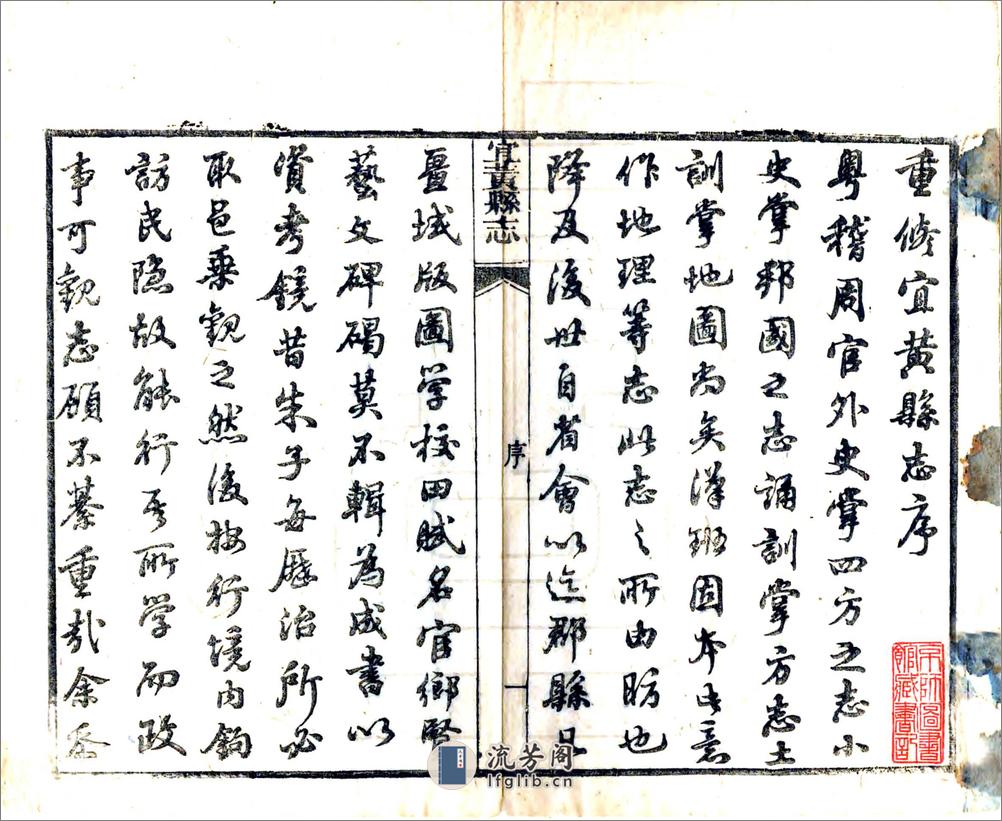 重修宜黄縣志序
粤稽周官外史掌四方之志小
史掌邦國之志誦訓掌方志土
訓掌地圖尚矣漢班固本此意
作地理等志此志之所由昉也
降及後世自省會以迄郡縣凡
宜黄縣志
序
一
疆域版圖學校田賦名宦鄉賢
藝文碑碣莫不輯為成書以
資考鏡昔朱子每歷治所必
取邑乗觀之然後按行境内詢
訪民隐故能行其所學而政
事可觀志顧不綦重哉余忝
京師圖書
館藏書記
流芳阁
lfglib.cn